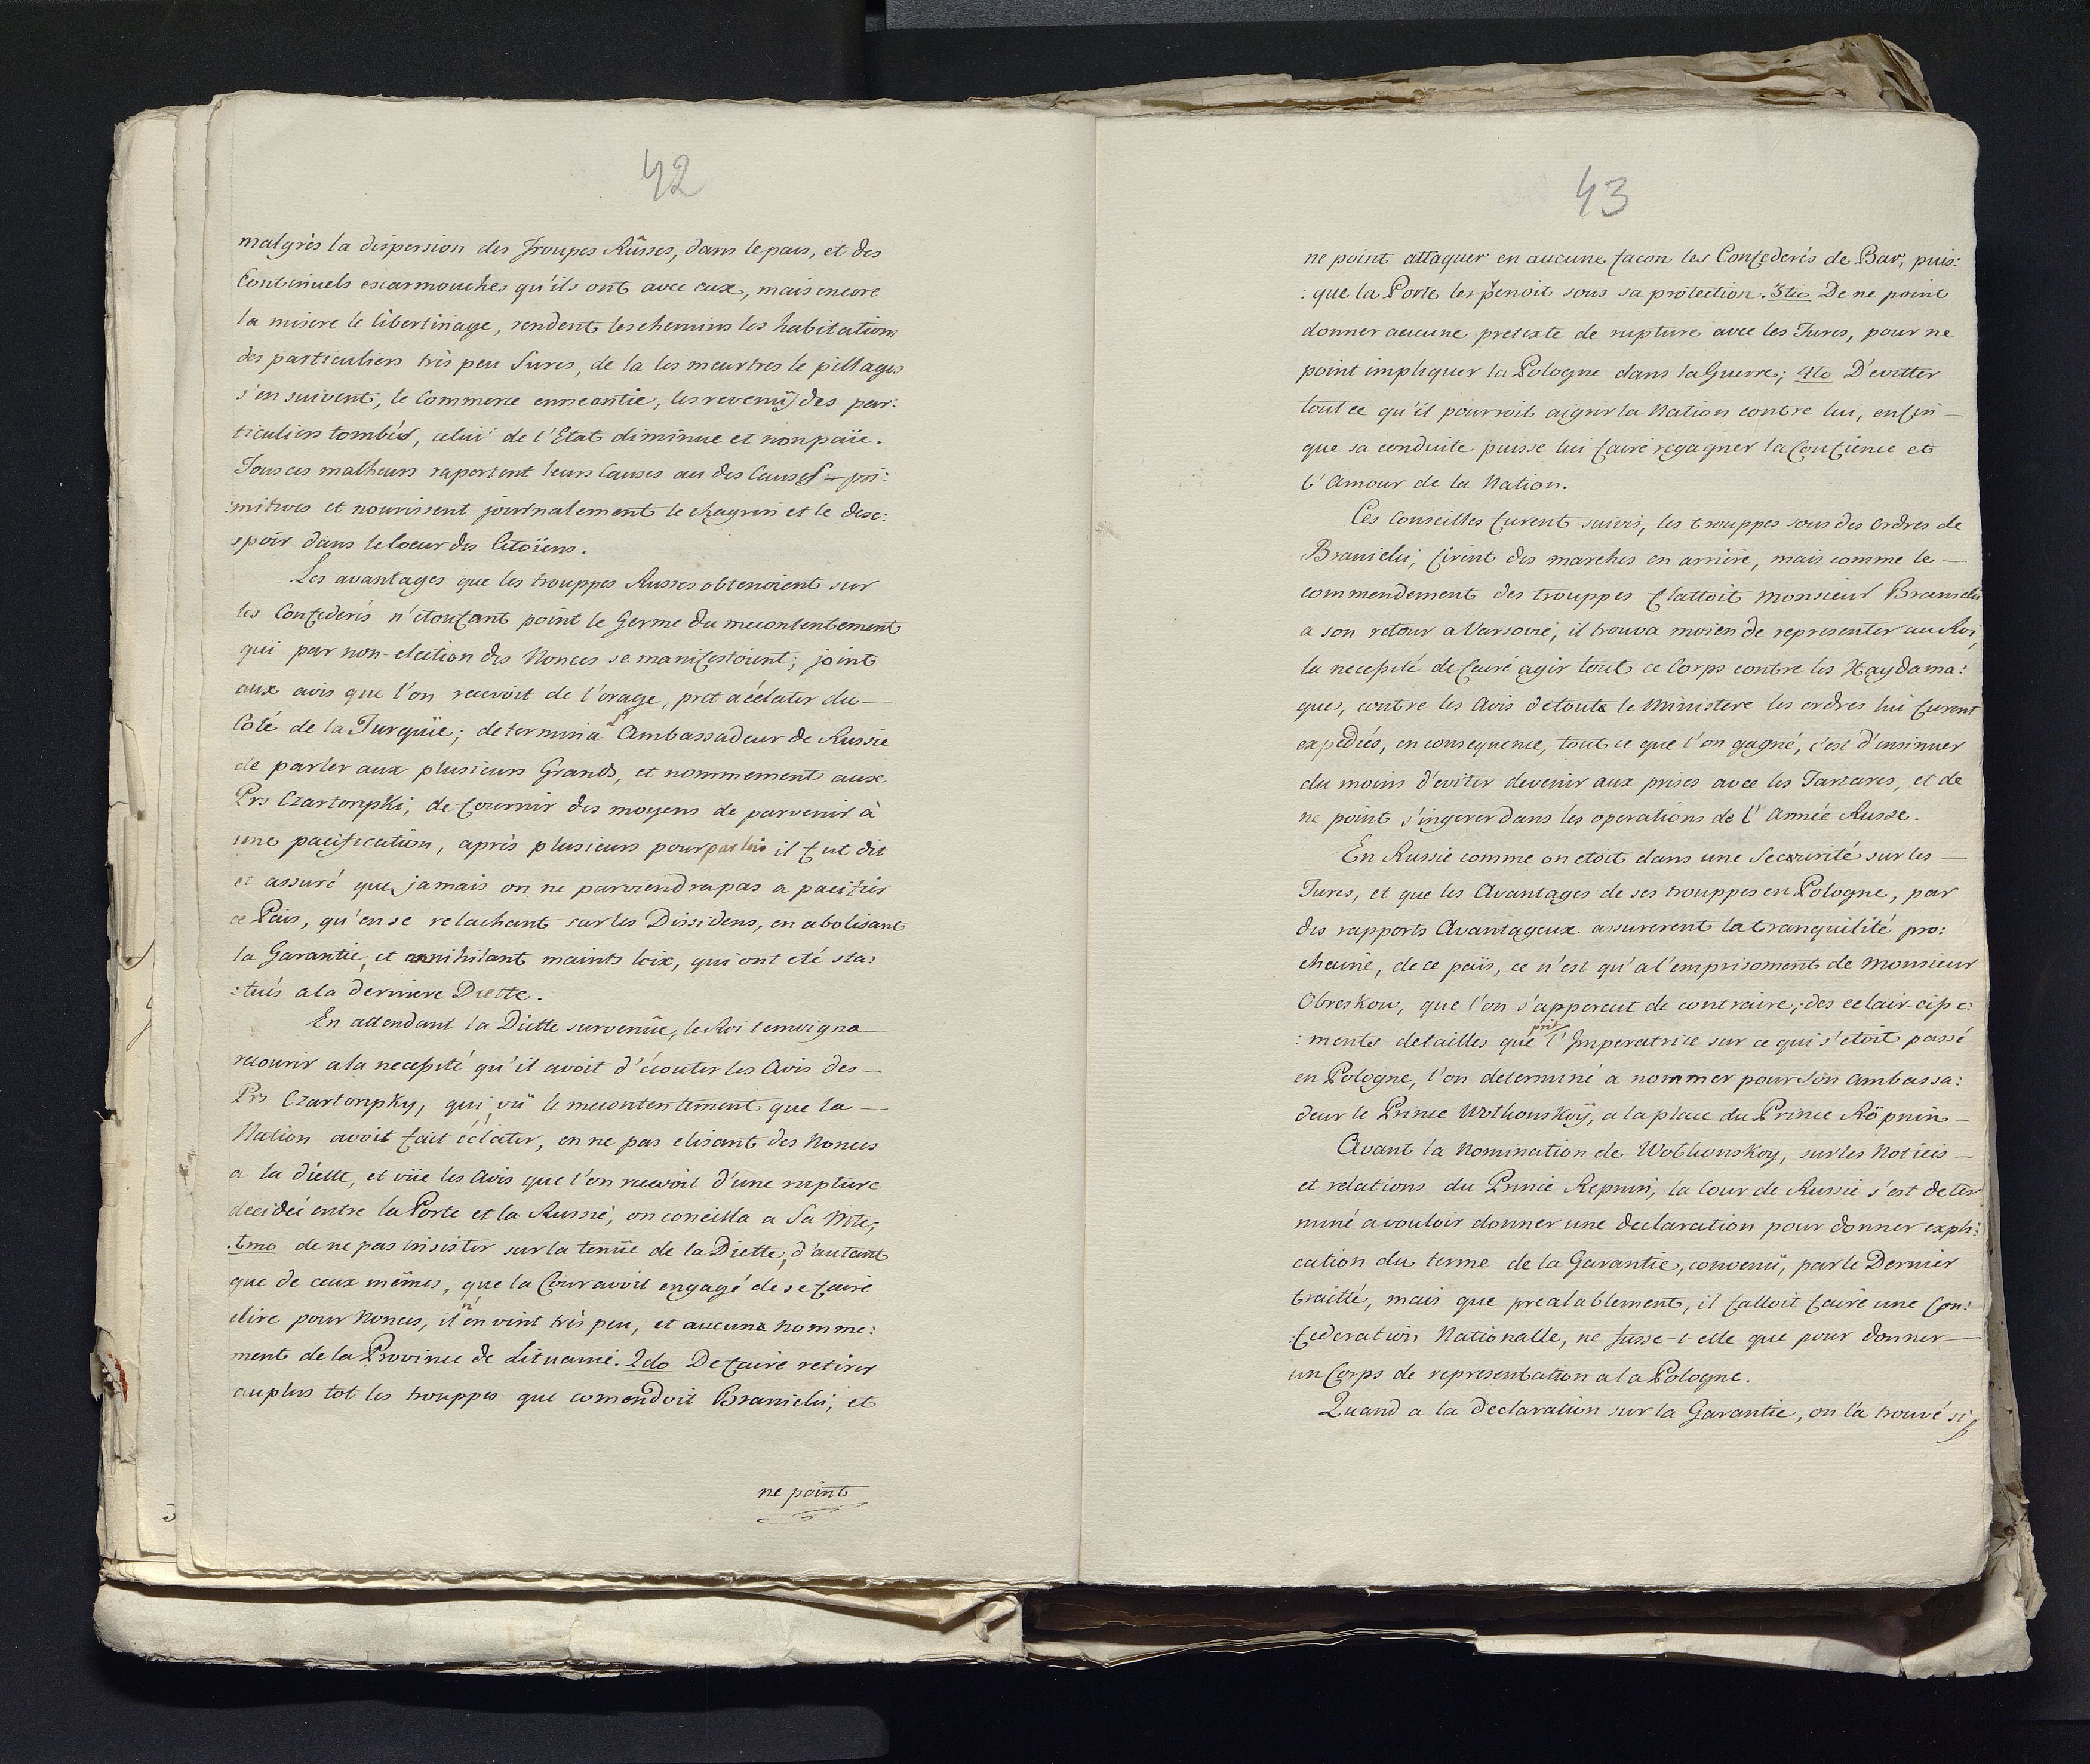 42
malgrès la dispersion des Troupes Rûsses, dans le païs, et des
Continuels escarmouches qu'ils ont avec eux, mais encore
la misere le libertinage, rendent les chemins les habitations
des particuliers très peu Sures, de la les meurtres le pillages
s'en suivent, le Commerce enneantie, les revenüs des par:
ticuliers tombés, celui de l'Etat diminue et non païe.
Tous ces malheurs raportent leurs Causes au des Causes pri:
:mitives et nourissent journalement le chagrin et le dese:
spoir dans le Coeur des Citoïens.
Les avantages que les trouppes Russes obtenoient sur
les Confederés n'étoufant point le Germe du mecontentement
qui par non-election des Nonces se manifestoient; joint
aux avis que l'on recevoit de l'orage, pret a éclater du
Coté de la Turquie; determina l' Ambassadeur de Russie
de parler aux plusieurs Grands, et nommement aux
Prs Czartoryski, de fournir des moyens de parvenir à
une pacification, après plusieurs pourparlers il fut dit
et assuré que jamais on ne parviendra pas a pacifier
ce Païs, qu'en se relachant sur les Dissidens, en abolisant
la Garantie, et annihilant maints loix, qui ont eté sta:
:tués a la derniere Diette.
En attendant la Diette survenüe, le Roi temoigna
recourir a la necessité qu'il avoit d'écouter les Avis des
Prs Czartorysky, qui vü le mecontentement que la
Nation avoit fait éclater, en ne pas elisant des Nonces
a la diette, et vüe les Avis que l'on recevoit d'une rupture
decidée entre la Porte et la Russie, on conseilla a Sa Mte,
1mo de ne pas insister sur la tenüe de la Diette, d'autant
que de ceux mêmes, que la Cour avoit engagé de se faire
elire pour Nonces, il n'en vint très peu, et aucune nomme:
ment de la Province de Lituanie. 2do De faire retirer
au plus tot les trouppes que comendoit Branicki, et
ne point
43
ne point attaquer en aucune facon les Confederés de Bar, puis:
:que la Porte les prenoit sous sa protection. 3tio De ne point
donner aucune pretexte de rupture avec les Turcs, pour ne
point impliquer la Pologne dans la Guerre; 4to D'evitter
tout ce qu'il pourroit aigrir la Nation contre lui, enfin
que sa conduite puisse lui faire regagner la Confience et
l'Amour de la Nation.
Ces Conseilles furent suivis, les trouppes sous des Ordres de
Branicki, firent des marches en arriere, mais comme le
commendement des trouppes flattoit Monsieur Branicki
a son retour a Varsovie, il trouva moien de representer au Roi,
la necessité de faire agir tout ce Corps contre les Haydama:
ques, contre les Avis de toute le Ministere les ordres lui furent
expediés, en consequence, tout ce que l'on gagné, c'est d'ensinuer
du moins d'eviter de venir aux prises avec les Tartares, et de
ne point s'ingerer dans les operations de l'Armée Russe.
En Russie comme on etoit dans une Securité sur les
Turcs, et que les Avantages de ses trouppes en Pologne, par
des rapports Avantageux assurerent la tranquilité pro:
chaine, de ce païs, ce n'est qu'a l'emprisoment de Monsieur
Obreskow, que l'on s'apperçut de contraire, des eclaircisse:
:ments detailles que prit l'Imperatrice sur ce qui s'etoit passé
en Pologne, l'on determiné a nommer pour Son Ambassa:
deur le Prince Wolkonskoÿ, a la place du Prince Röpnin
Avant la Nomination de Wolkonskoy, sur les Notices
et relations du Prince Repnin, la Cour de Russie s'est deter
miné a vouloir donner une declaration pour donner expli:
cation du terme de la Garantie, convenü, par le Dernier
traitté, mais que prealablement, il falloit faire une Con:
:federation Nationalle, ne fusse-t-elle que pour donner
un Corps de representation a la Pologne.
Quand a la declaration sur la Garantie, on l'a trouvé si